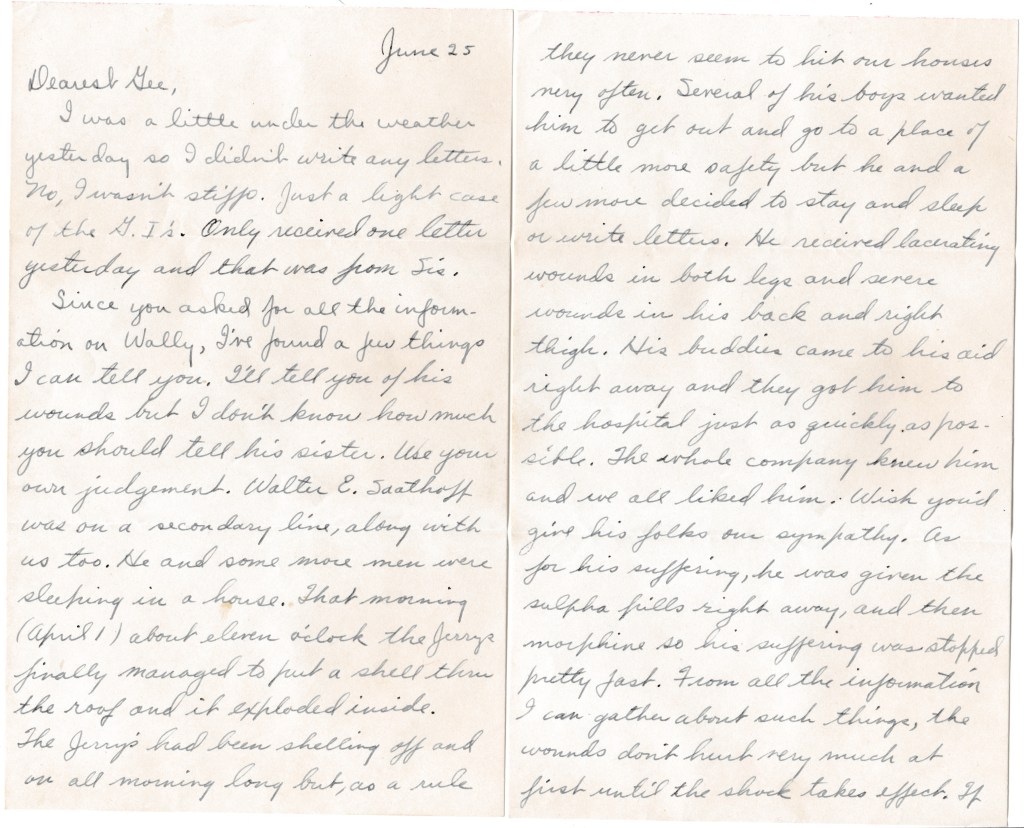 June 25
Dearest Gee,
I was a little under the weather
yesterday so I didn't write any letters.
No, I wasn't stiffo. Just a light case
of the G. I's. Only received one letter
yesterday and that was from Sis.
Since you asked for all the inform-
ation on Wally, I've found a few things
I can tell you. I'll tell you of his
wounds but I don't know how much
you should tell his sister. Use your
own judgement. Walter E. Saathoff
was on a secondary line, along with
us too. He and some more men were
sleeping in a house. That morning
(April 1) about eleven o'clock the Jerrys
finally managed to put a shell thru
the roof and it exploded inside.
The Jerry's had been shelling off and
on all morning long but, as a rule
they never seem to hit our houses
very often. Several of his boys wanted
him to get out and go to a place of
a little more safety but he and a
few more decided to stay and sleep
or write letters. He received lacerating
wounds in both legs and severe
wounds in his back and right
thigh. His buddies came to his aid
right away and they got him to
the hospital just as quickly as pos-
sible. The whole company knew him
and we all liked him. Wish you'd
give his folks our sympathy. As
for his suffering, he was given the
sulpha pills right away, and then
morphine so his suffering was stopped
pretty fast. From all the information
I can gather about such things, the
wounds don't hurt very much at
first until the shock takes effect. If